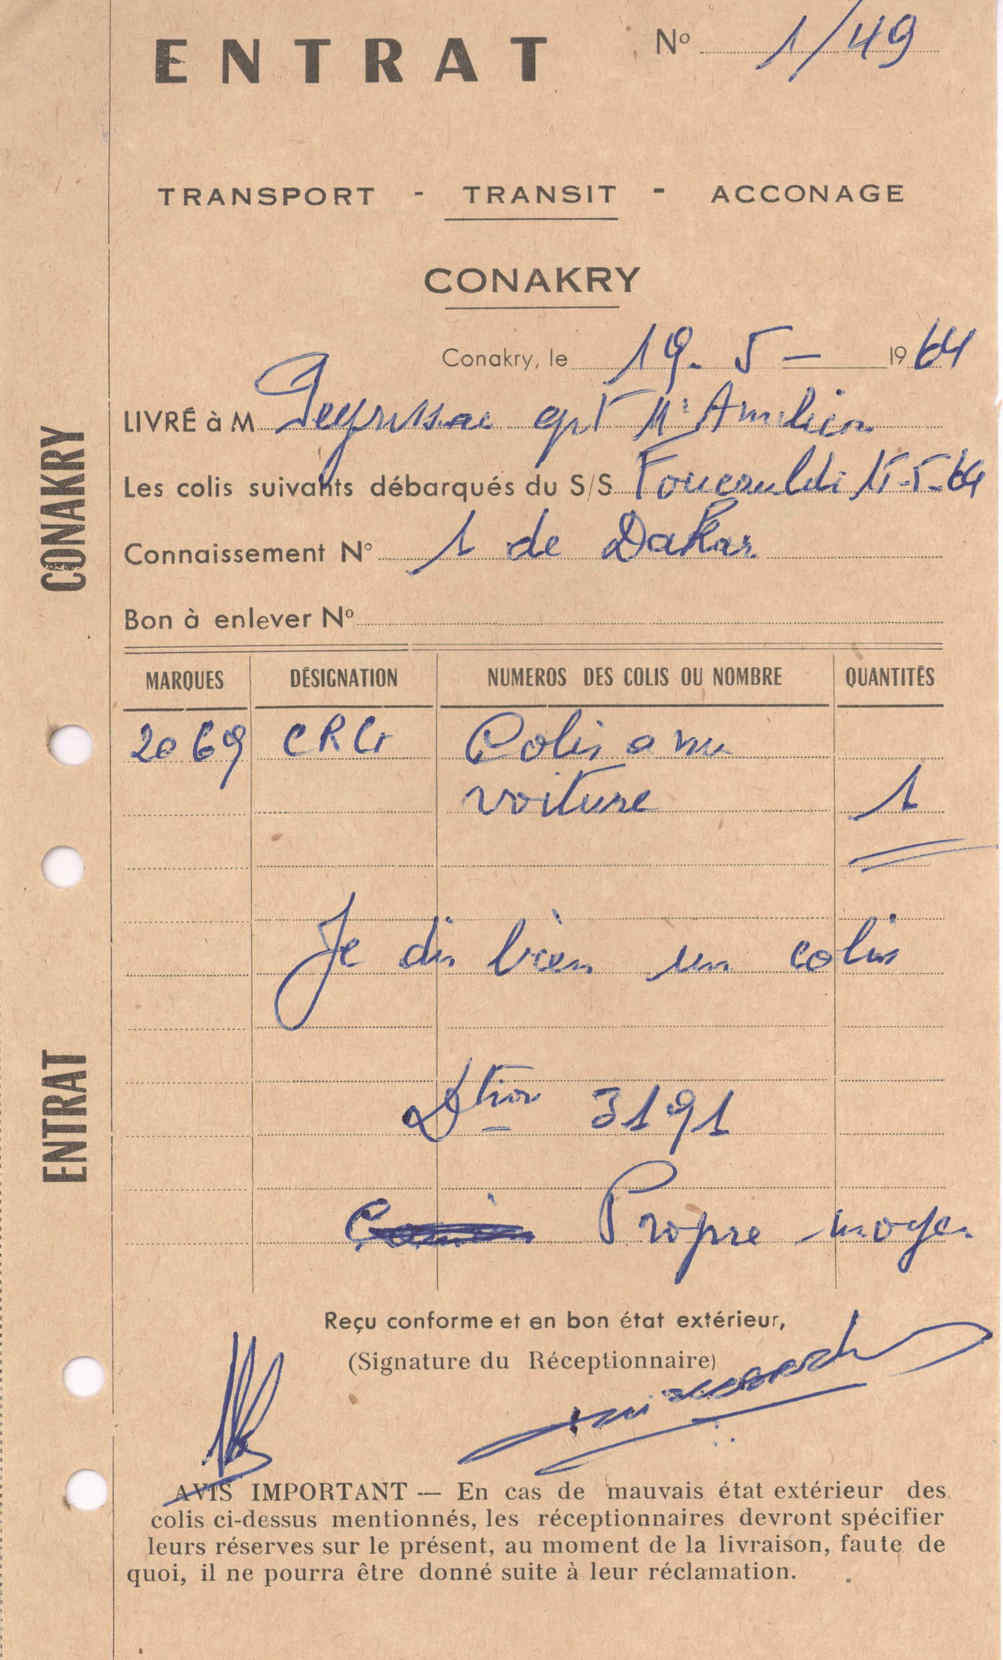 ENTRAT Nº 1/49
TRANSPORT - TRANSIT - ACCONAGE
CONAKRY
Conakry, le 19. 5 - 1964
LIVRÉ à M Peyrissac cpt Mr
Les colis suivants débarqués du S/S Foucauld 15-5-64
Connaissement N° 1 de Dakar
Bon à enlever Nº
MARQUES DÉSIGNATION NUMEROS DES COLIS OU NOMBRE QUANTITÉS
2069 CRG Colis a nu
voiture 1
Je dis bien un colis
Dtion 3191
Propre moyen
Reçu conforme et en bon état extérieur,
(Signature du Réceptionnaire)
AVIS IMPORTANT — En cas de mauvais état extérieur des
colis ci-dessus mentionnés, les réceptionnaires devront spécifier
leurs réserves sur le présent, au moment de la livraison, faute de
quoi, il ne pourra être donné suite à leur réclamation.
CONAKRY
ENTRAT